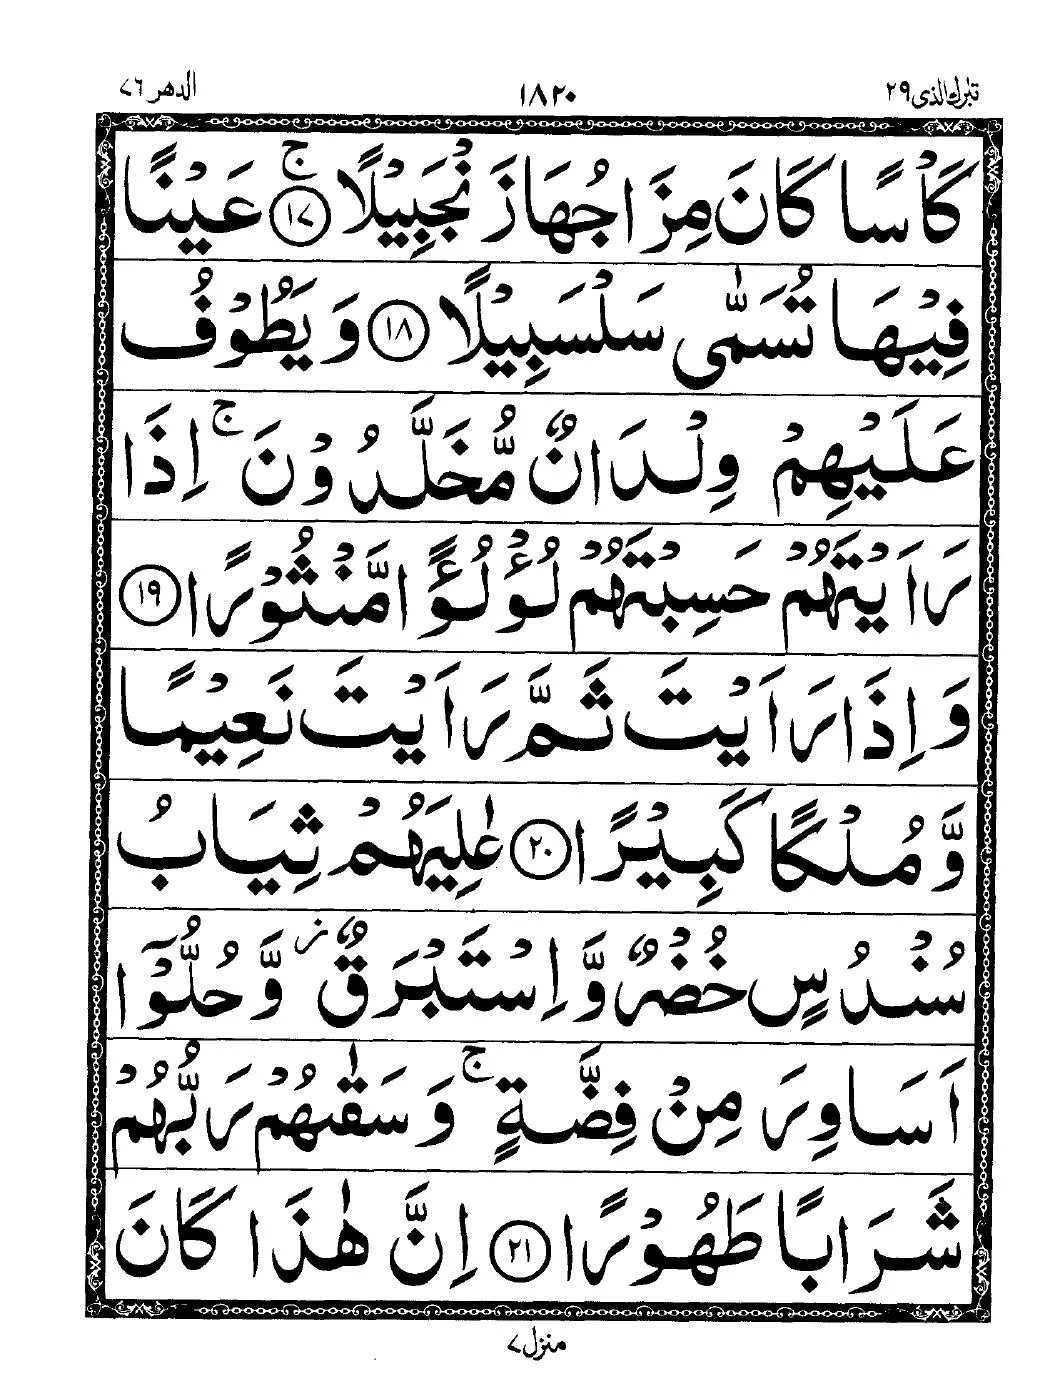 تبرك الذى ٢٩ ١٨٢٠ الدهر ٧٦
كَاْسًا كَانَ مِزَاجُهَا زَنْجَبِيْلًا ۚ ﴿١٧﴾ عَيْنًا
فِيْهَا تُسَمّٰى سَلْسَبِيْلًا ﴿١٨﴾ وَيَطُوْفُ
عَلَيْهِمْ وِلْدَانٌ مُّخَلَّدُوْنَ ۚ اِذَا
رَاَيْتَهُمْ حَسِبْتَهُمْ لُؤْلُؤًا مَّنْثُوْرًا ﴿١٩﴾
وَاِذَا رَاَيْتَ ثَمَّ رَاَيْتَ نَعِيْمًا
وَّمُلْكًا كَبِيْرًا ﴿٢٠﴾ عٰلِيَهُمْ ثِيَابُ
سُنْدُسٍ خُضْرٌ وَّاِسْتَبْرَقٌ ز وَّحُلُّوْۤا
اَسَاوِرَ مِنْ فِضَّةٍ ۚ وَسَقٰىهُمْ رَبُّهُمْ
شَرَابًا طَهُوْرًا ﴿٢١﴾ اِنَّ هٰذَا كَانَ
منزل ٧